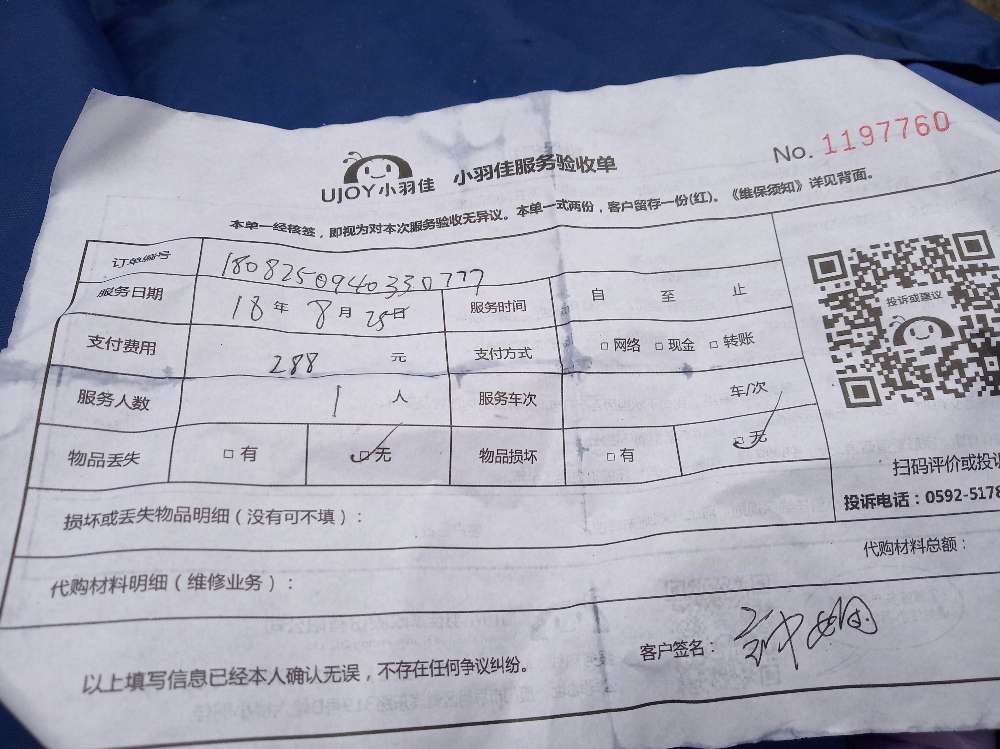 UJOY小羽佳 小羽佳服务验收单 No. 1197760
本单一经核签，即视为对本次服务验收无异议。本单一式两份，客户留存一份(红)。《维保须知》详见背面。
订单编号 1808250940330777
服务日期 18年8月25日 服务时间 自 至 止
支付费用 288 元 支付方式 □网络 □现金 □转账
服务人数 1 人 服务车次 车/次
物品丢失 □有 □无 物品损坏 □有 □无
投诉或建议
扫码评价或投诉
投诉电话：0592-5178
损坏或丢失物品明细（没有可不填）：
代购材料明细（维修业务）： 代购材料总额：
以上填写信息已经本人确认无误，不存在任何争议纠纷。 客户签名：